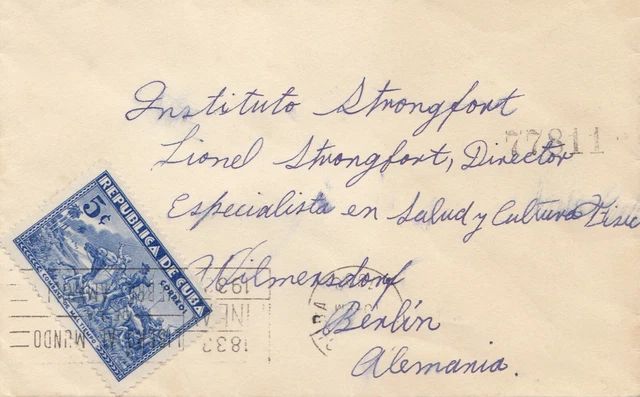 Instituto Strongfort
77811
Lionel Strongfort, Director
Especialista en Salud y Cultura Fisic
Wilmersdorf
Berlín
Alemania.
REPUBLICA DE CUBA
5¢
CORREO
1833
MUNDO